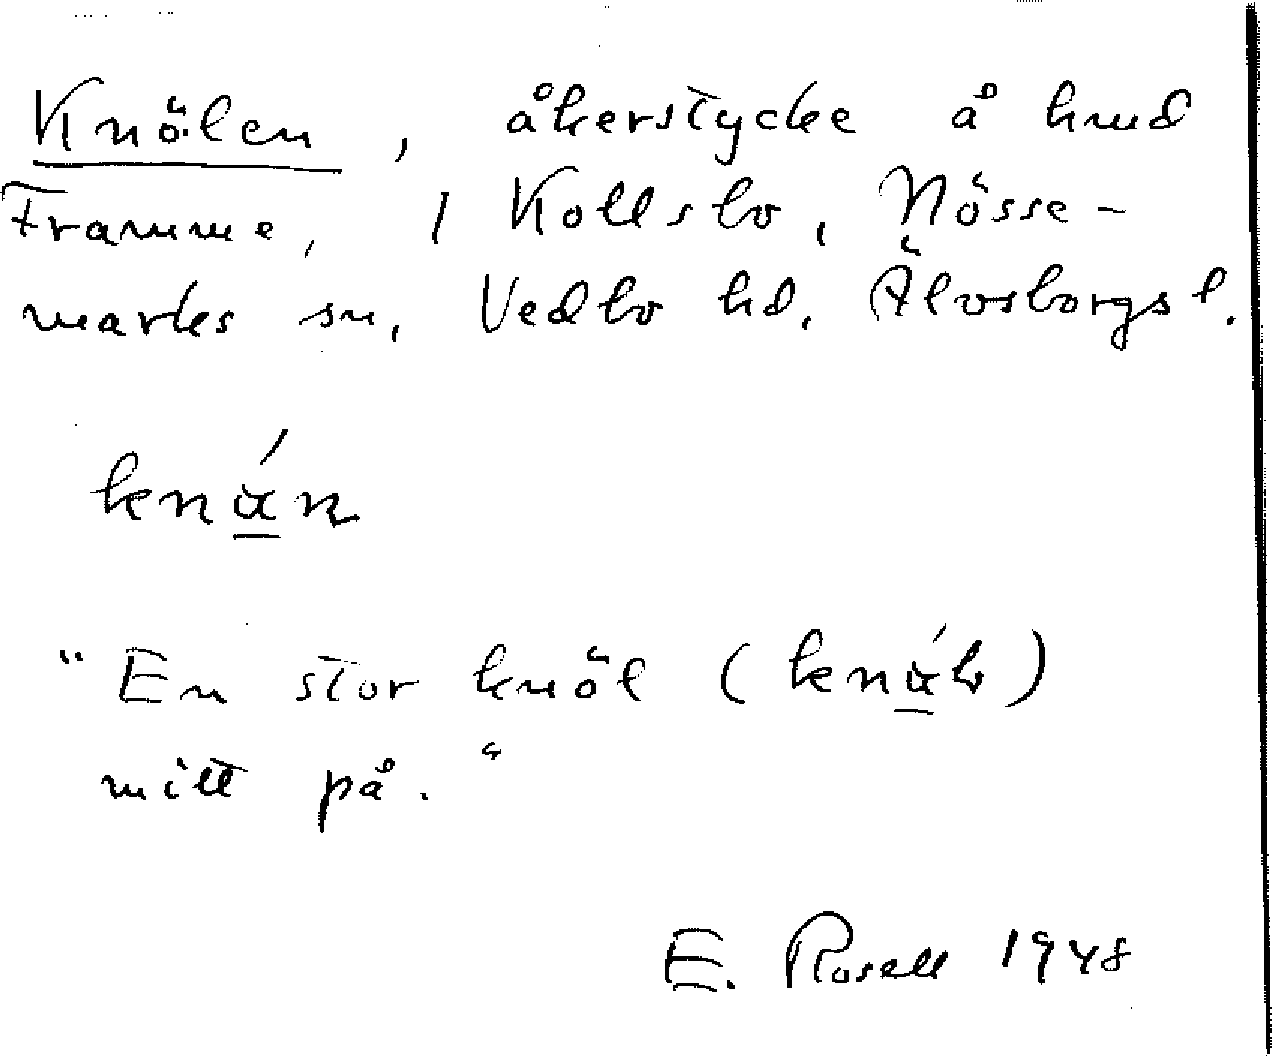 Knölen, åkerstycke å hmd
Framme, 1 Kollsbo, Nösse-
marks sn, Vedbo hd, Älvsborgs l.
knά̱n
"En stor knöl (knά̱ł)
mitt på."
E. Rosell 1948